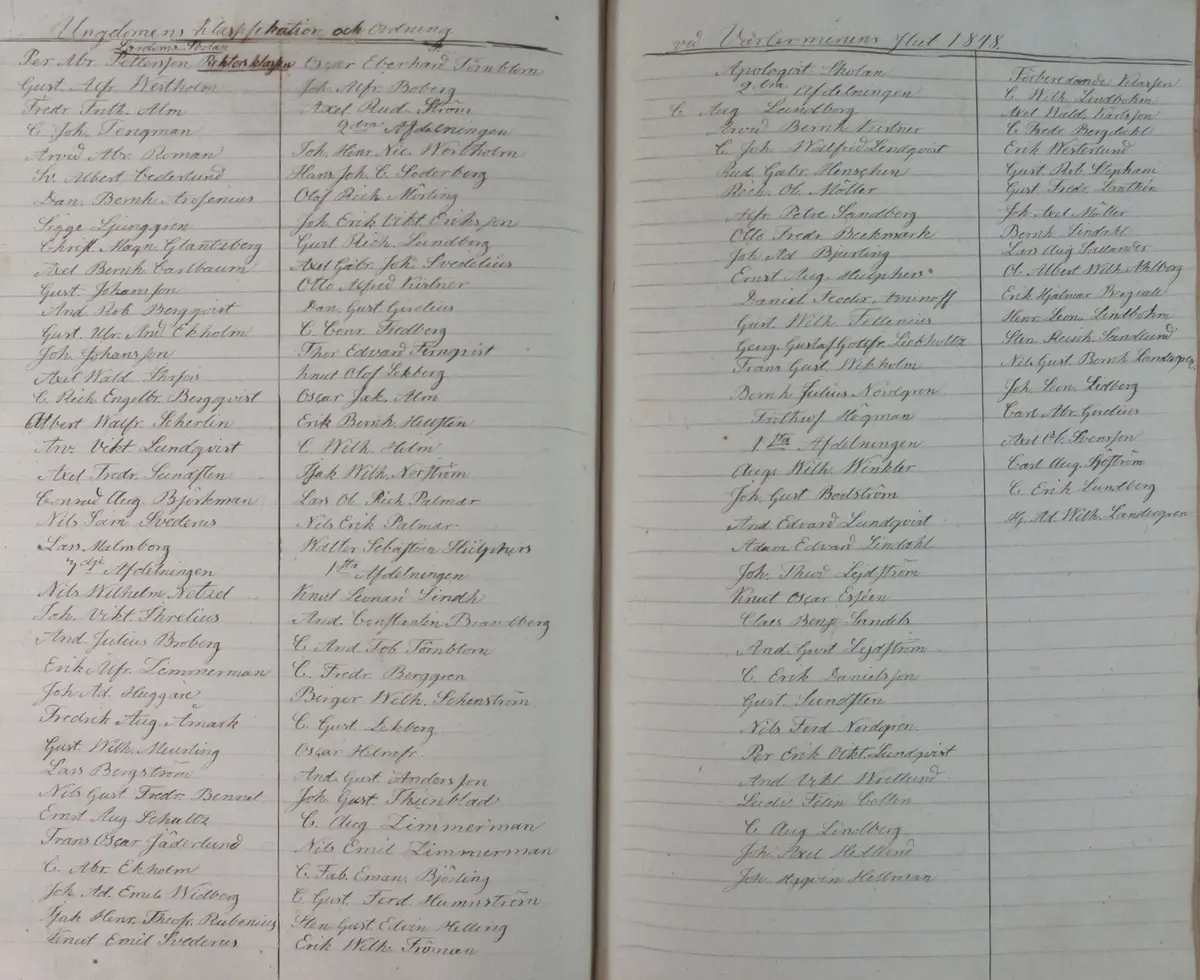 Ungdomens Klassifikation och Ordning
Lärdoms Skolan
Per Abr. Pettersson Rektorsklassen
Gust. Alfr. Westholm
Fredr. Frith. Alm
C. Joh. Tengman
Arvid Abr. Roman
Sv. Albert Cederlund
Dan. Bernh. Arosenius
Sigge Ljunggren
Christ. Magn. Glantzberg
Axel Bernh. Carlbaum
Gust. Johansson
And. Rob. Bergqvist
Gust. Ulr. And. Ekholm
Joh. Johansson
Axel Wald.
C. Rich. Engelbr. Bergqvist
Albert Walfr. Scherlin
Arv. Vikt. Lundqvist
Axel Fredr. Sundsten
Conrad Aug. Björkman
Nils Sam. Svederus
Lars Malmborg
3dje Afdelningen
Nils Wilhelm Netzel
Joh. Vikt. Threlius
And. Julius Broberg
Erik Alfr. Zimmerman
Joh. Ad. Huggare
Fredrik Aug. Åmark
Gust. Wilh. Meurling
Lars Bergström
Nils Gust. Fredr. Bennet
Ernst Aug. Schultz
Frans Oscar Jäderlund
C. Abr. Ekholm
Joh. Ad. Emil Widberg
Isak Henr. Theofr. Rubenius
Knut Emil Svederus
Oscar Eberhard Törnblom
Joh. Alfr. Boberg
Axel Rud. Ström
2dra Afdelningen
Joh. Henr. Nic. Westholm
Hans Joh. C. Söderberg
Olof Rich. Mörling
Joh. Erik Vikt. Eriksson
Gust. Rich. Lundberg
Axel Gabr. Joh. Svedelius
Otto Alfred Kistner
Dan. Gust. Girelius
C. Conr. Fredberg
Thor Edvard Fernqvist
Knut Olof Lekberg
Oscar Jak. Alm
Erik Bernh. Hellsten
C. Wilh. Holm
Isak Wilh. Norström
Lars Ol. Rich. Palmær
Nils Erik Palmær
Walter Sebastian Hülphers
1sta Afdelningen
Knut Leonard Lindh
And. Constantin Brandberg
C. And. Tob. Törnblom
C. Fredr. Berggren
Birger Wilh. Schenström
C. Gust. Lekberg
Oscar
And. Gust. Andersson
Joh. Gust. Thunblad
C. Aug. Zimmerman
Nils Emil Zimmerman
C. Fab. Eman. Björling
C. Gust. Ferd. Hammström
Sten Gust. Edvin Helling
Erik Wilh. Fröman
vid Vårterminens slut 1848.
Apologist Skolan
2dra Afdelningen
C. Aug. Lundborg
Arvid Bernh. Kistner
C. Joh. Wallfrid Lindqvist
Rud. Gabr. Henschen
Rich. Ol. Möller
Alfr. Petre Sandberg
Otto Fredr. Beckmark
Joh. Ad. Bjurling
Ernst Aug. Hülphers
Daniel Feodor Aminoff
Gust. Wilh. Tellenius
Georg Gustaf Gottfr. Liebholtz
Frans Gust. Wikholm
Bernh. Julius Nordgren
Frithiof Högman
1sta Afdelningen
Aug. Wilh. Winkler
Joh. Gust. Bodström
And. Edvard Lundqvist
Adam Edvard Lindahl
Joh. Theod. Lejdström
Knut Oscar Esséen
Claes Benj. Sandels
And. Gust. Lejdström
C. Erik Danielsson
Gust. Sundsten
Nils Ferd. Nordgren
Per Erik Vikt. Lundqvist
And. Vikt. Wretlund
Ludv. Felix Collin
C. Aug. Lindberg
Joh. Axel Hedlund
Joh. Hellman
Förberedande Klassen
C. Wilh. Lindbohm
Axel Wald. Karlsson
C. Fredr. Bergdahl
Erik Westerlund
Gust. Rob. Stephani
Gust. Fredr. Zanthée
Joh. Axel Möller
Bernh. Lindahl
Lars Aug. Salander
Ol. Albert Wilh. Ahlborg
Erik Hjalmar Bergvall
Henr. Leon. Lindbohm
Sten Reinh. Sandlund
Nils Gust. Bernh. Landegren
Joh. Leon. Lidberg
Carl Abr. Girelius
Axel Ol. Svensson
Carl Aug. Sjöström
C. Erik Lundberg
Hj. Ad. Wilh. Landergren